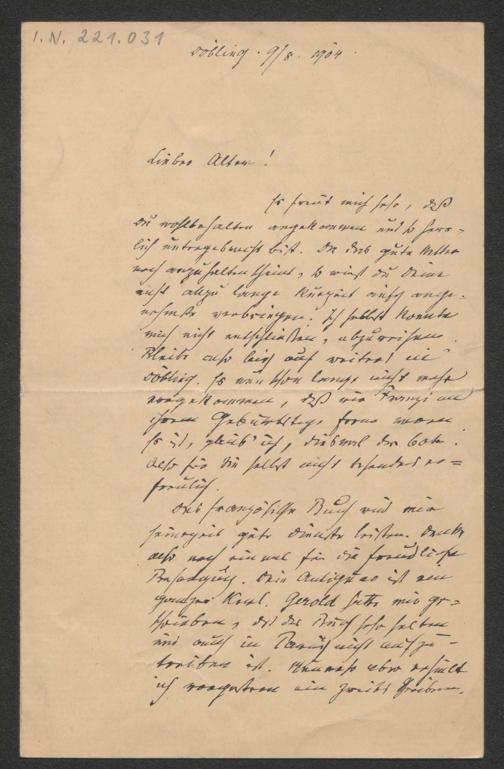 I.N. 221.031
Döbling. 9/8. 1904.
Lieber Alter!
Es freut mich sehr, daß
du wohlbehalten angekommen und so herr-
lich untergebracht bist. Da das gute Wetter
noch anzuhalten scheint, so wirst du deine
nicht allzu lange Kurzeit aufs ange-
nehmste verbringen. Ich selbst konnte
mich nicht entschließen, abzureisen.
Bleibe also bis auf weiteres in
Döbling. Es war schon lange nicht mehr
vorgekommen, daß wir Franzi an
ihrem Geburtstage ferne waren.
Es ist, glaub' ich, diesmal der 60te.
Also für sie selbst nicht besonders er=
freulich.
Das französische Buch wird mir
seinerzeit gute Dienste leisten. Danke
also noch einmal für die freundliche
Besorgung. Dein Antiquar ist ein
ganzer Kerl. Gerold hatte mir ge-
schrieben, daß das Buch sehr selten
und auch in Paris nicht aufzu-
treiben ist. Nunmehr aber erhielt
ich vorgestern ein zweites Schreiben,